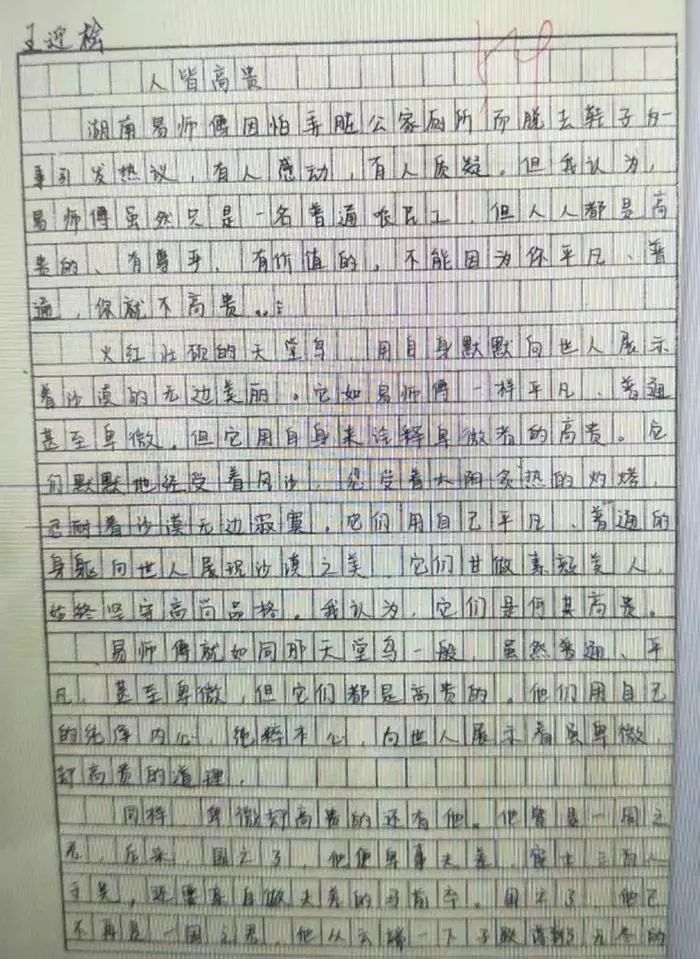 王迎桧
人皆高贵
湖南易师傅因怕弄脏公家厕所而脱去鞋子的一
事引发热议，有人感动，有人质疑。但我认为，
易师傅虽然只是一名普通农民工，但人人都是高
贵的、有尊严、有价值的，不能因为你平凡、普
通，你就不高贵。
火红壮硕的天堂鸟，用自身默默向世人展示
着沙漠的无边美丽。它如易师傅一样平凡、普通
甚至卑微，但它用自身来诠释卑微者的高贵。它
们默默地经受着风沙，忍受着太阳炙热的灼烤，
忍耐着沙漠无边寂寞，它们用自己平凡、普通的
身躯向世人展现沙漠之美，它们甘做素颜美人，
始终坚守高尚品格。我认为，它们是何其高贵。
易师傅就如同那天堂鸟一般，虽然普通、平
凡，甚至卑微，但它们都是高贵的。他们用自己
的纯净内心，纯粹本心，向世人展示着虽卑微，
却高贵的道理。
同样，卑微却高贵的还有他。他曾是一国之
君，后来，国亡了，他便卑事夫差，宦士三百人
于吴，还要亲自做夫差的马前卒。国亡了，他已
不再是一国之君，他从云端一下子跌落到了无尽的